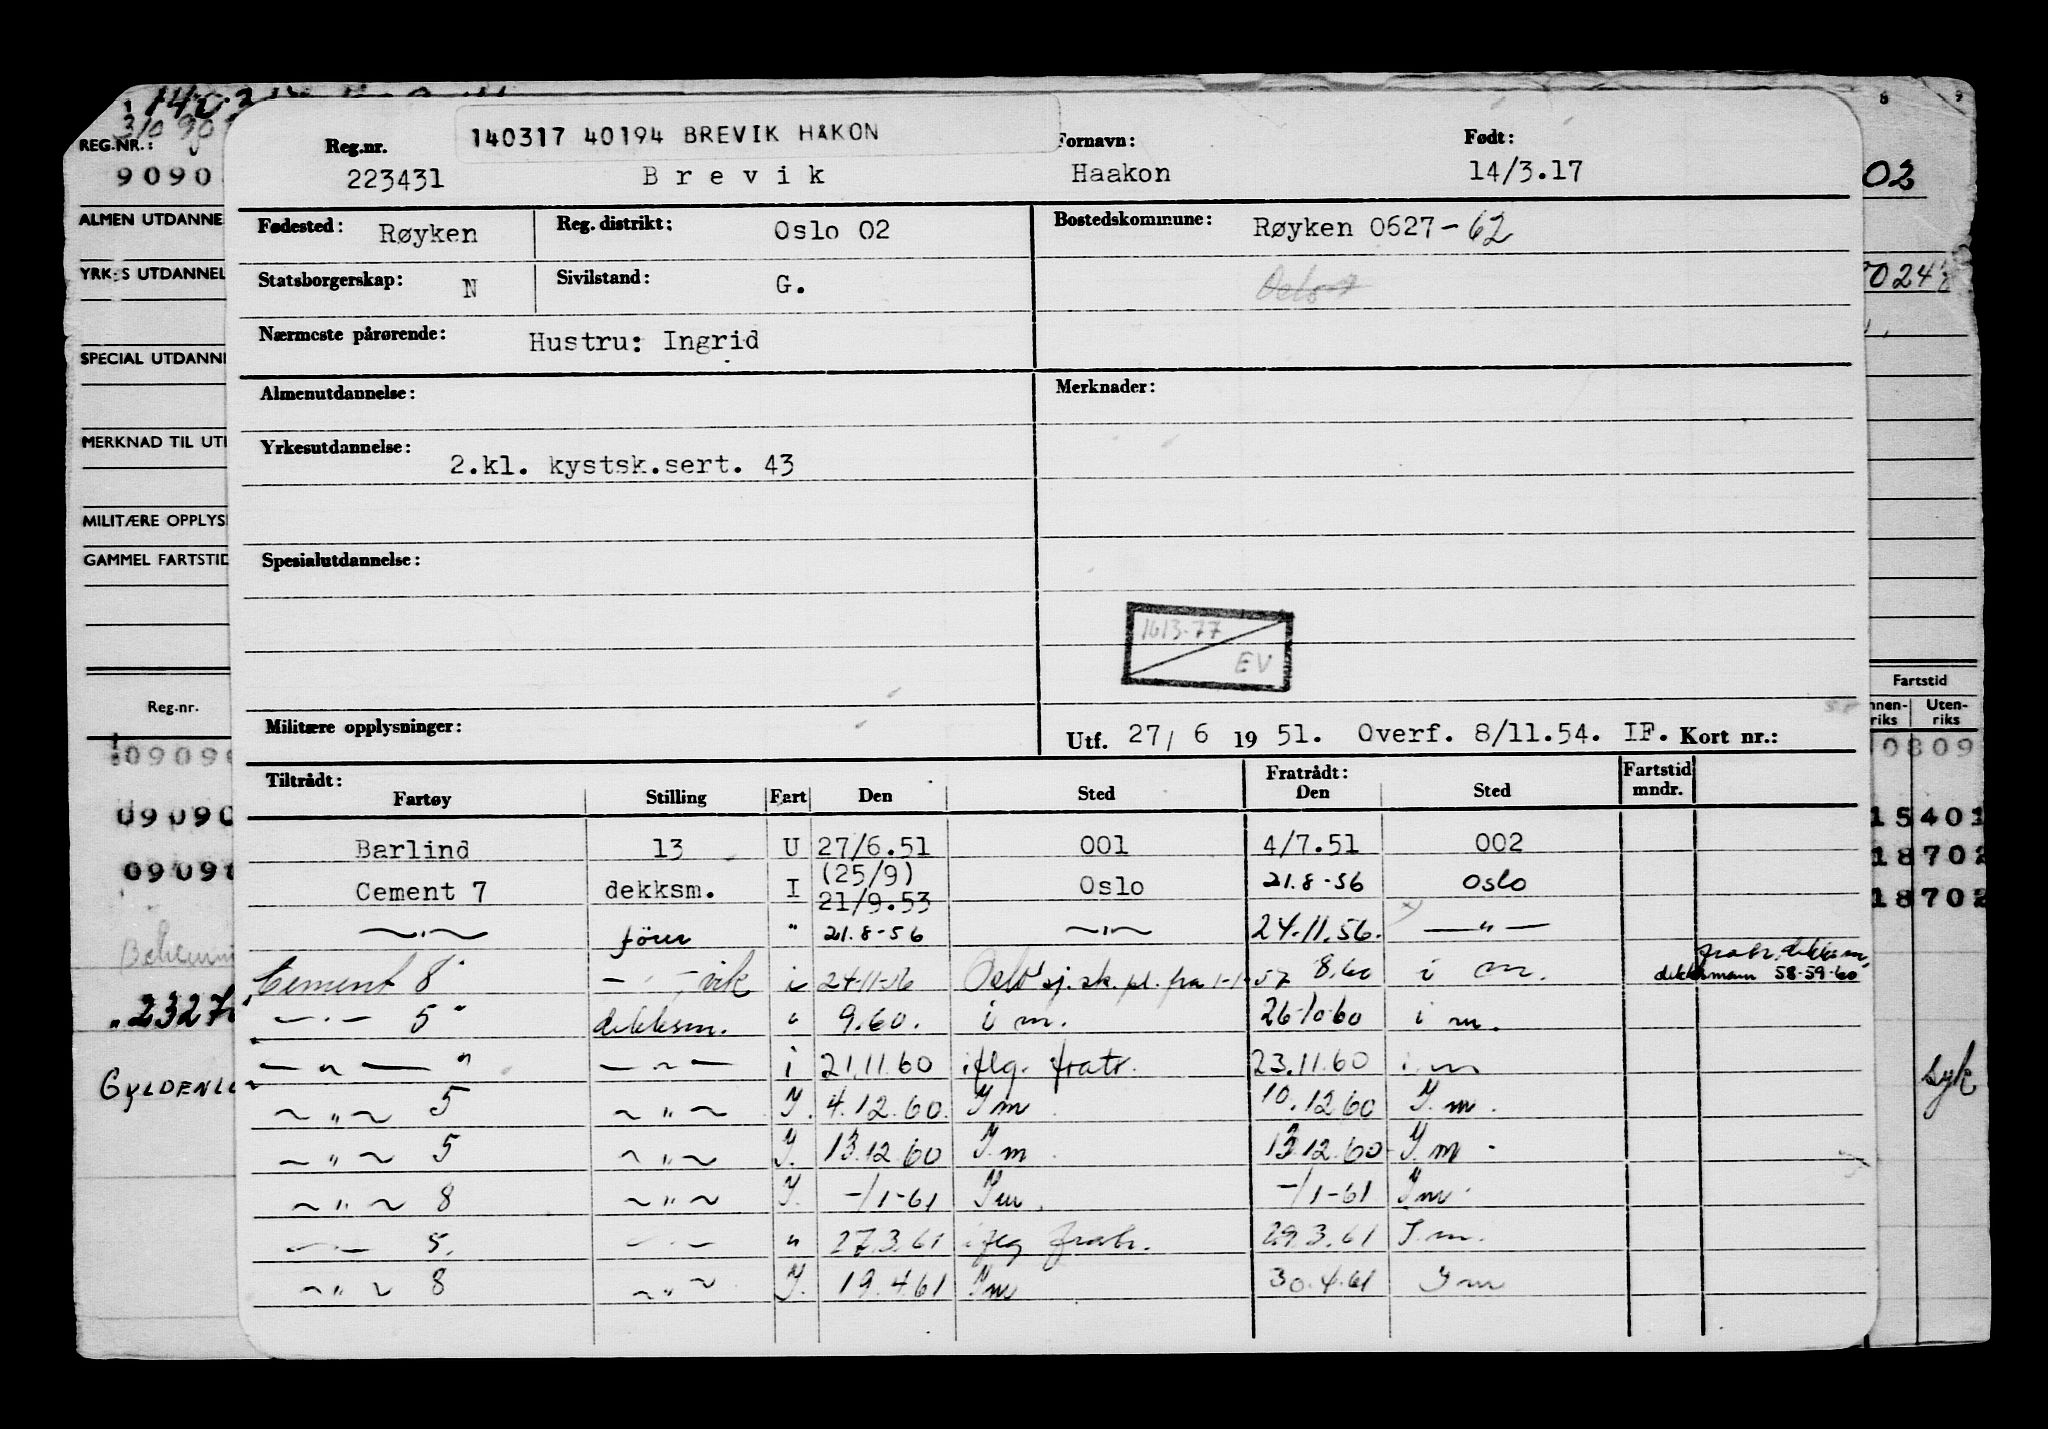 140317 40194 BREVIK HÅKON
Reg.nr. Fornavn: Født:
223431 Brevik Haakon 14/3.17
Fødested: Røyken Reg. distrikt: Oslo 02 Bostedskommune: Røyken 0627-62
Statsborgerskap: N Sivilstand: G. Oslo
Nærmeste pårørende: Hustru: Ingrid
Almenutdannelse: Merknader:
Yrkesutdannelse: 2.kl. kystsk.sert. 43
Spesialutdannelse:
1613-77
EV
Militære opplysninger: Utf. 27/ 6 19 51. Overf. 8/11.54. IF. Kort nr.:
Tiltrådt: Fratrådt: Fartstid mndr.
Fartøy Stilling Fart Den Sted Den Sted
Barlind 13 U 27/6.51 001 4/7.51 002
Cement 7 dekksm. I (25/9) 21/9.53 Oslo 21.8-56 Oslo
—"— fører " 21.8-56 —"— 24.11.56. —"—
fratr. dekksm.
Cement 8 — " — vik i 24-11-56 Oslo sj.sk.pl. fra 1-1-57 8.60 i m. dekksmann 58-59-60
— " — 5 " dekksm. " 9.60. i m. 26-10-60 i m.
— " — " — " — i 21.11.60 iflg. fratr. 23.11.60 i m
— " — 5 — " — I. 4.12.60. I m. 10.12.60 I. m.
— " — 5 — " — I. 13.12.60 I. m. 13.12.60 I. m.
— " — 8 — " — I. -/1-61 I m. -/1-61 I m.
— " — 5. — " — " 27.3.61 iflg fratr. 29.3.61 I. m.
— " — 8 — " — I. 19.4.61 I m 30.4.61 I m
REG.NR.:
9090
ALMEN UTDANNE
YRKES UTDANNEL
SPECIAL UTDANN
MERKNAD TIL UT
MILITÆRE OPPLYS
GAMMEL FARTSTID
Reg.nr.
09090
09090
23276
GYLDENL
8 9
02
0248
Fartstid
nnen-riks Uten-riks
0809
15401
18702
18702
syk